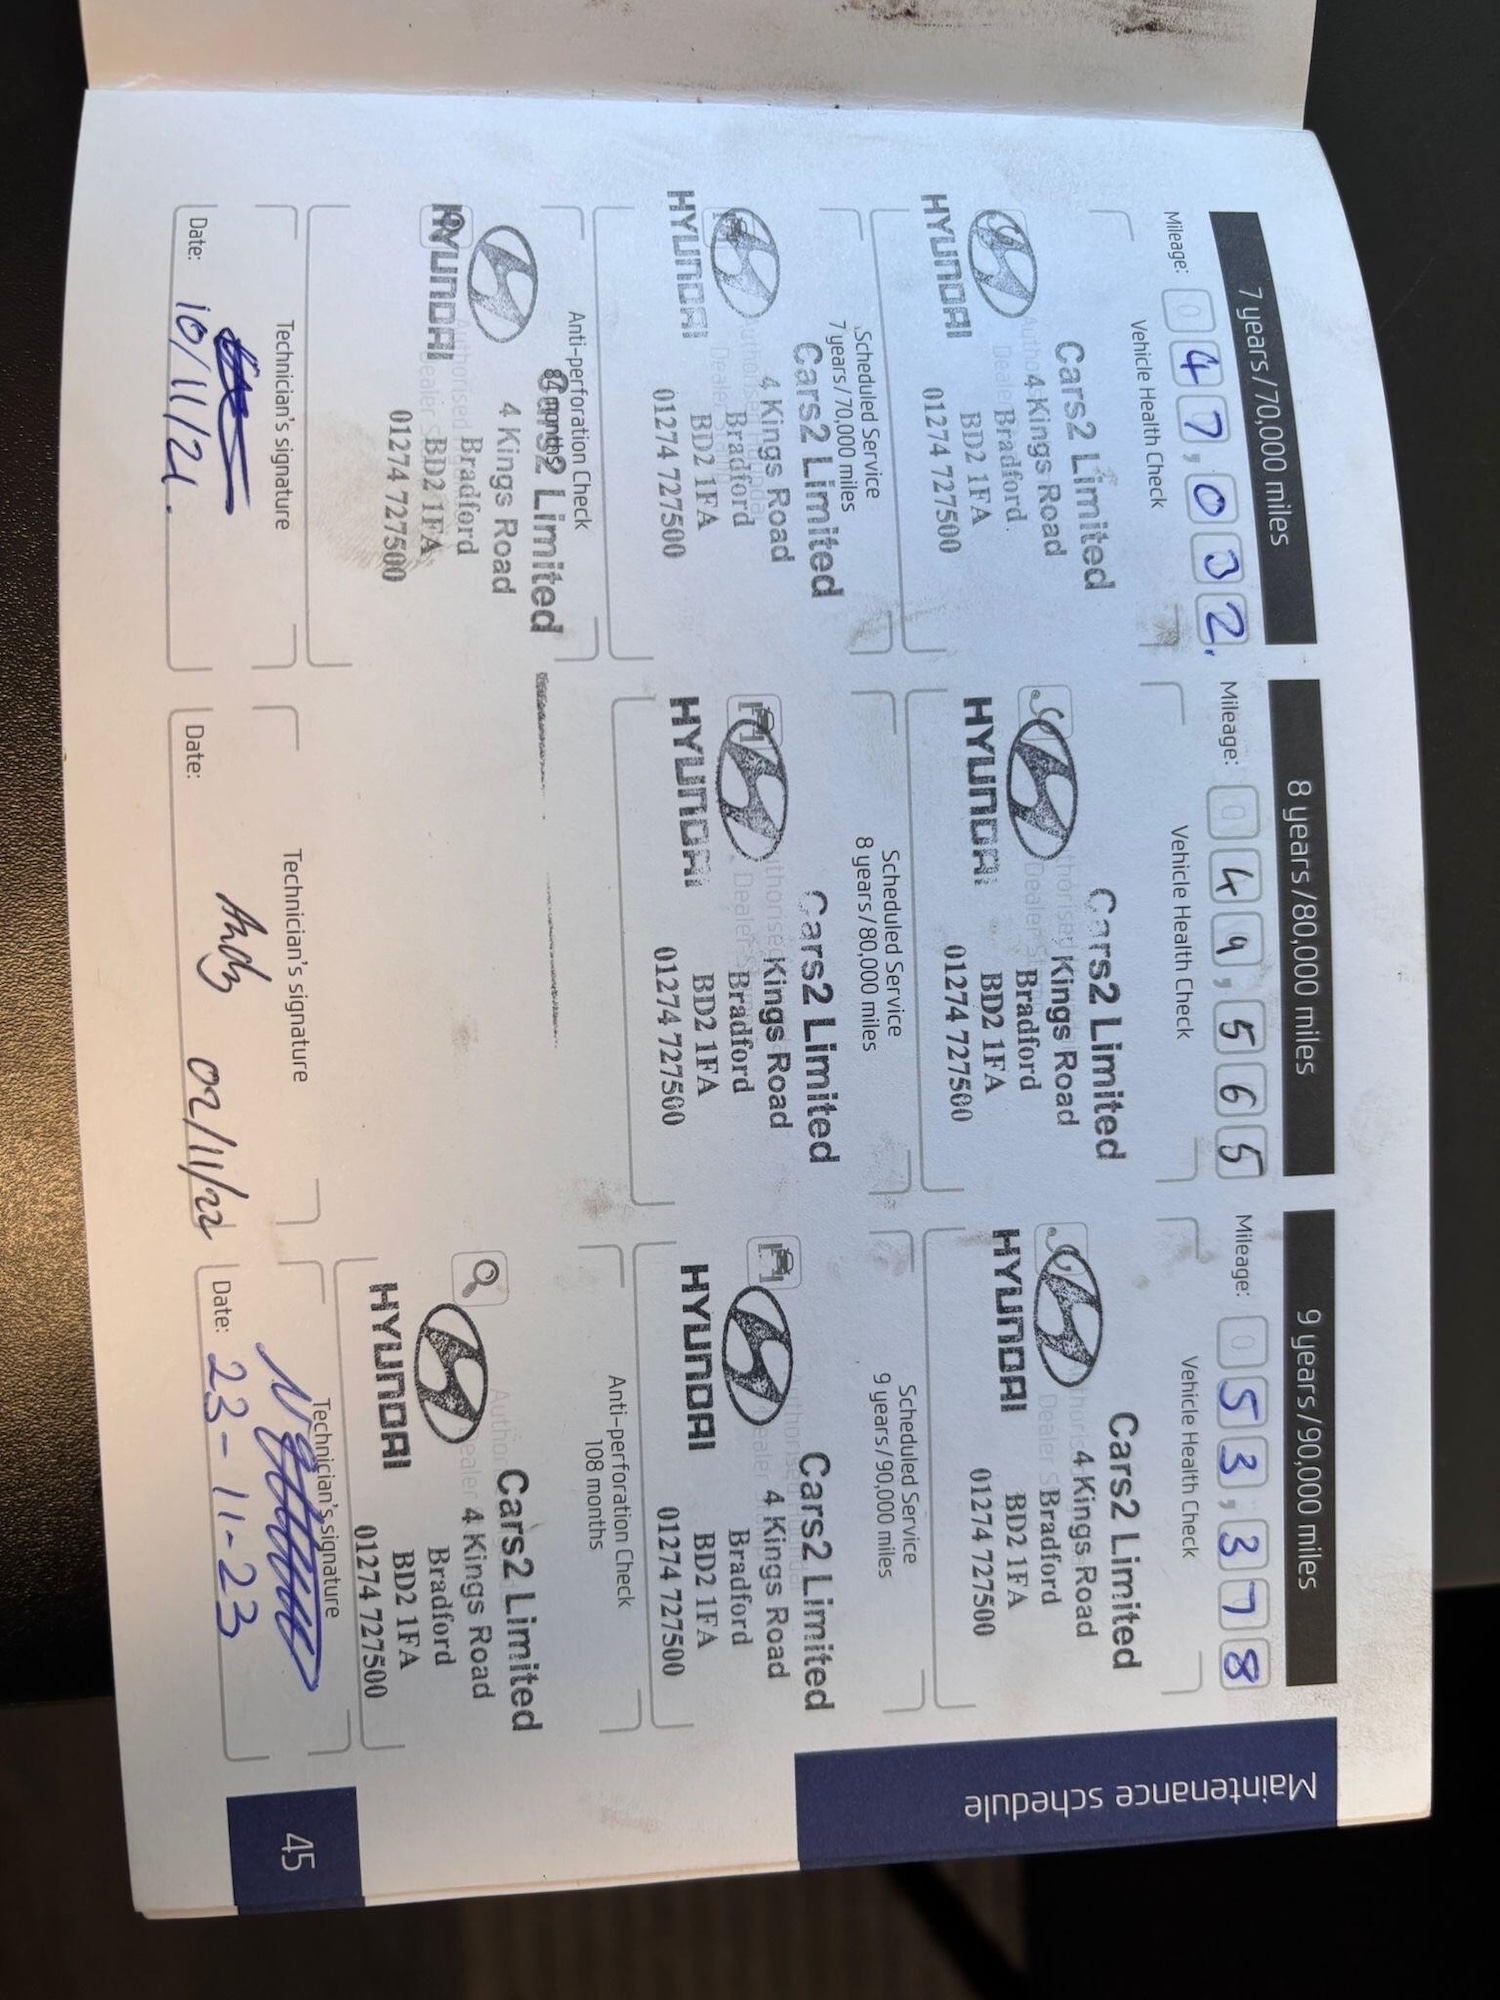 7 years/70,000 miles
Mileage: 047,032.
Vehicle Health Check
Cars2 Limited
4 Kings Road
Bradford
BD2 1FA
01274 727500
HYUNDAI
Scheduled Service
7 years/70,000 miles
Cars2 Limited
4 Kings Road
Bradford
BD2 1FA
01274 727500
HYUNDAI
Anti-perforation Check
84 months
Cars2 Limited
4 Kings Road
Bradford
BD2 1FA
01274 727500
HYUNDAI
Technician's signature
Date: 10/11/21.
8 years/80,000 miles
Mileage: 049,565
Vehicle Health Check
Cars2 Limited
Kings Road
Bradford
BD2 1FA
01274 727500
HYUNDAI
Scheduled Service
8 years/80,000 miles
Cars2 Limited
Kings Road
Bradford
BD2 1FA
01274 727500
HYUNDAI
Technician's signature
Andy
Date: 02/11/22
9 years/90,000 miles
Mileage: 053,378
Vehicle Health Check
Cars2 Limited
4 Kings Road
Bradford
BD2 1FA
01274 727500
HYUNDAI
Scheduled Service
9 years/90,000 miles
Cars2 Limited
4 Kings Road
Bradford
BD2 1FA
01274 727500
HYUNDAI
Anti-perforation Check
108 months
Cars2 Limited
4 Kings Road
Bradford
BD2 1FA
01274 727500
HYUNDAI
Technician's signature
Date: 23-11-23
Maintenance schedule
45